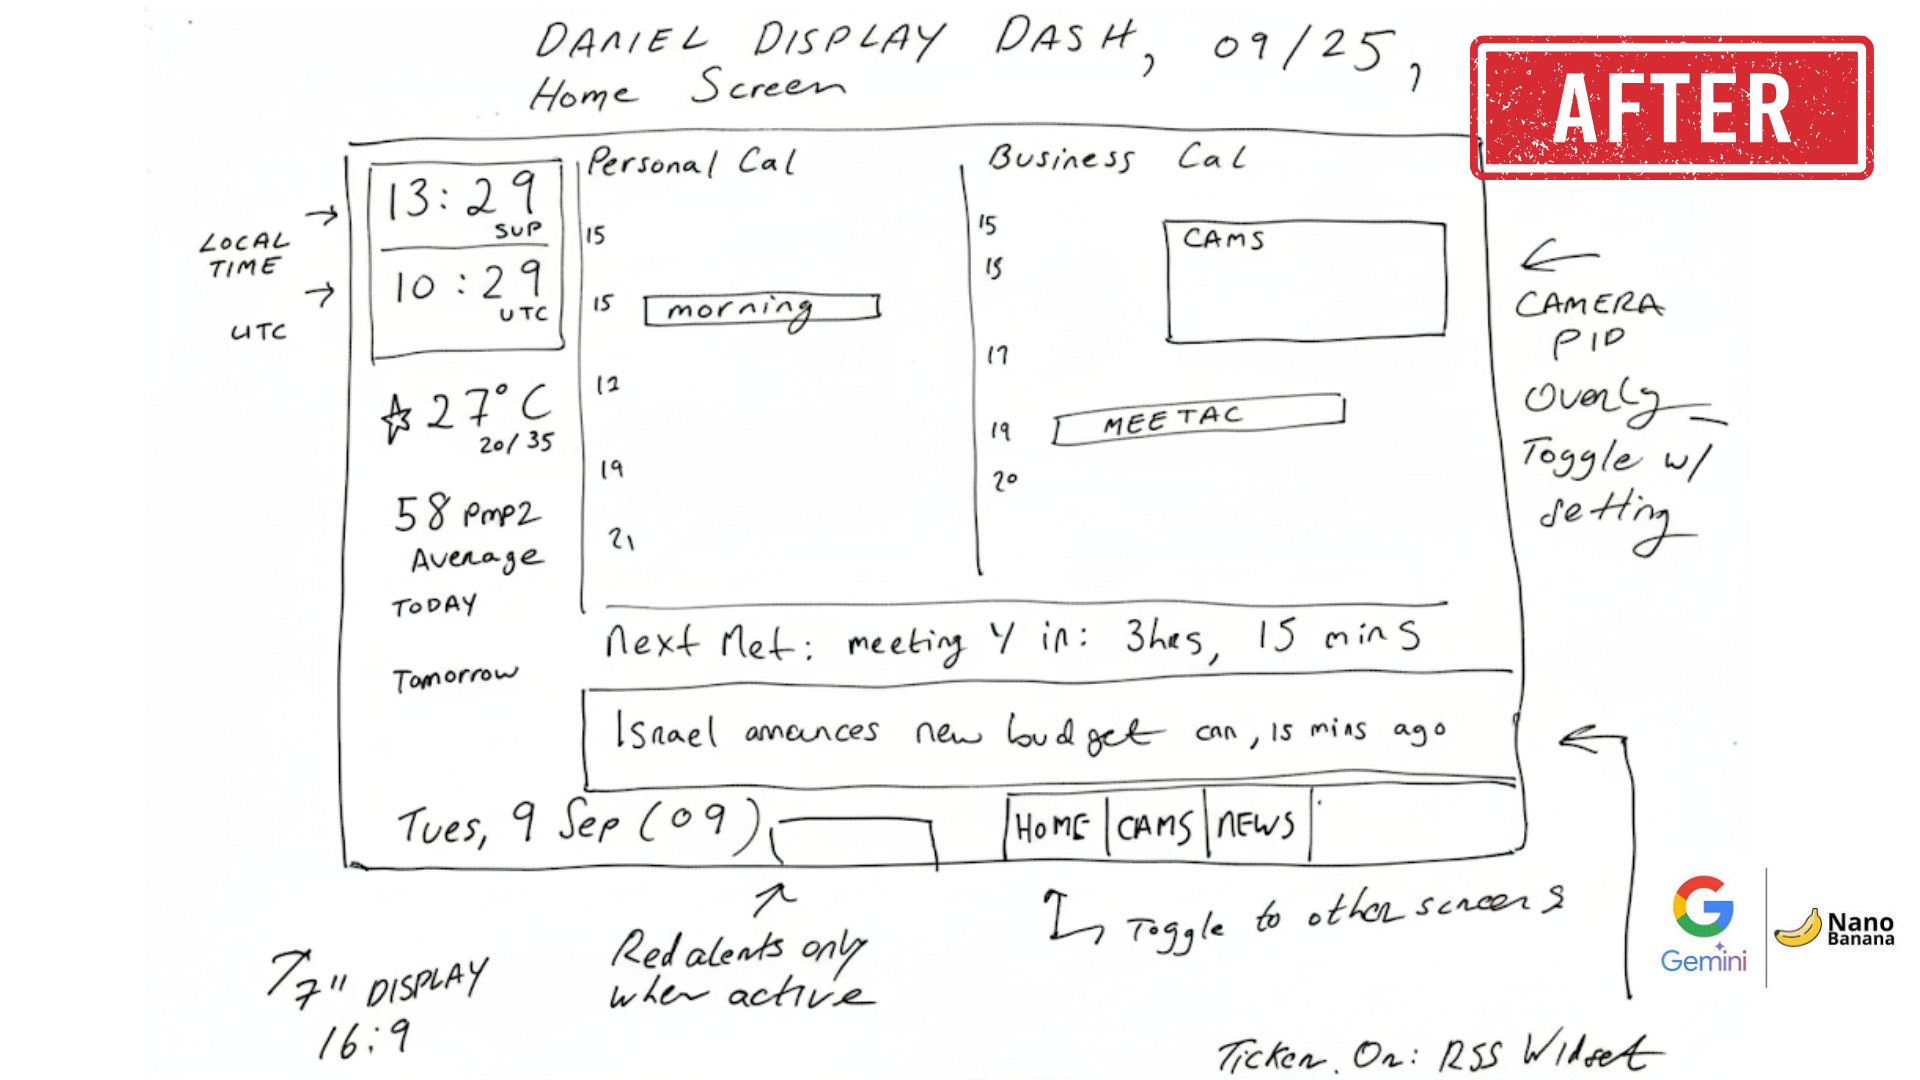 DANIEL DISPLAY DASH, 09/25,
Home Screen
AFTER
LOCAL
TIME
UTC
13:29
SUP
10:29
UTC
☆ 27°C
20/35
58 pmp2
Average
TODAY
Tomorrow
Personal Cal
15
15
morning
12
19
21
Business Cal
15
15
CAMS
17
19
MEETAC
20
CAMERA
PIP
Overly
Toggle w/
setting
Next Met: meeting Y in: 3hrs, 15 mins
Israel amances new budget can, 15 mins ago
Tues, 9 Sep (09)
HOME
CAMS
NEWS
7" DISPLAY
16:9
Red alents only
when active
Toggle to other screens
Ticker. On: RSS Widset
Gemini
Nano
Banana